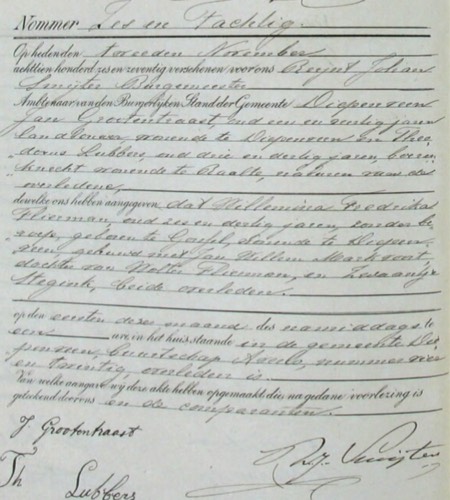 Nommer Zes en Tachtig.
Op heden den tweeden November
achttien honderd zes en zeventig verschenen voor ons Reijnt Johan
Smijter Burgemeester
Ambtenaar van den Burgerlijken Stand der Gemeente Diepenveen
Jan Grootentraast, oud een en dertig jaren
landbouwer, wonende te Diepenveen en Theo-
dorus Lubbers, oud drie en dertig jaren, boeren
knecht wonende te Raalte, naburen van de
overledene,
dewelke ons hebben aangegeven, dat Willemina Fredrika
Flierman, oud zes en dertig jaren, zonder be-
roep, geboren te Gorssel, wonende te Diepen-
veen, gehuwd met Jan Willem Markvoort,
dochter van Wolter Flierman, en Zwaantje
Stegink, beide overleden.
op den eersten dezer maand des namiddags te
een ure in het huis staande in de gemeente Die-
penveen, buurtschap Averlo, nummer vier
en twintig, overleden is
Van welke aangave wij deze akte hebben opgemaakt die na gedane voorlezing is
geteekend door ons en de comparanten.
J. Grootentraast
Th Lubbers